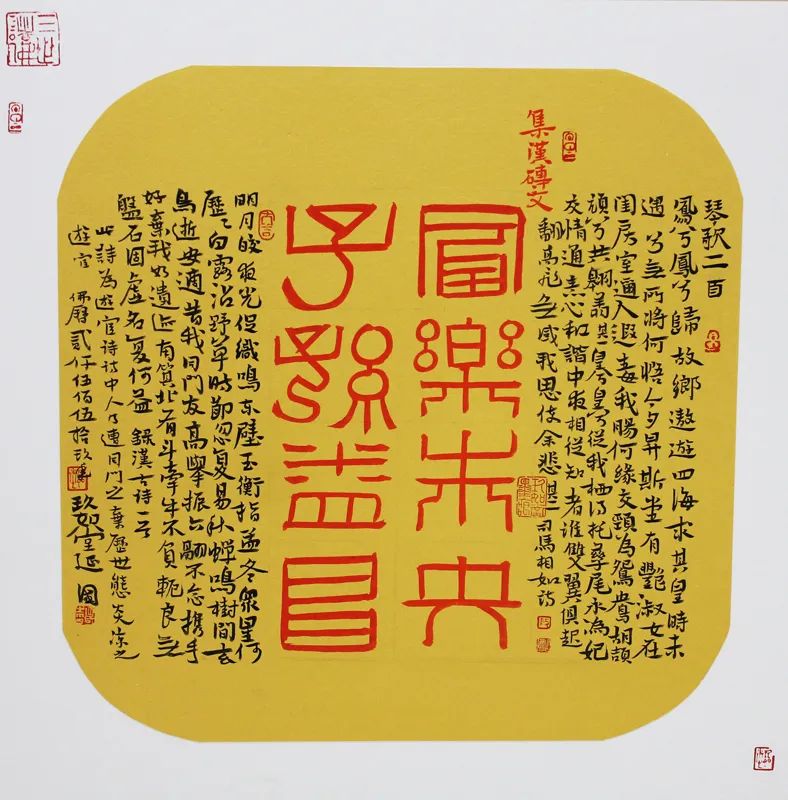 集漢磚文
富樂未央
子孫益昌
琴歌二首
鳳兮鳳兮歸故鄉遨遊四海求其皇時未
遇兮無所將何悟今夕昇斯堂有艷淑女在
閨房室邇人遐毒我腸何緣交頸為鴛鴦胡頡
頏兮共翱翔其一皇兮皇兮從我栖得托孳尾永為妃
交情通意心和諧中夜相從知者誰雙翼俱起
翻高飛無感我思使余悲其二司馬相如詩
明月皎夜光促織鳴東壁玉衡指孟冬眾星何
歷歷白露沾野草時節忽復易秋蟬鳴樹間玄
鳥逝安適昔我同門友高舉振六翮不念携手
好棄我如遺跡南箕北有斗牽牛不負軛良無
盤石固虛名復何益 錄漢古詩一首
此詩為遊宦詩詩中人乃遭同門之棄歷世態炎涼之
遊宦 佛曆貳仟伍佰伍拾玖 玖如堂延國